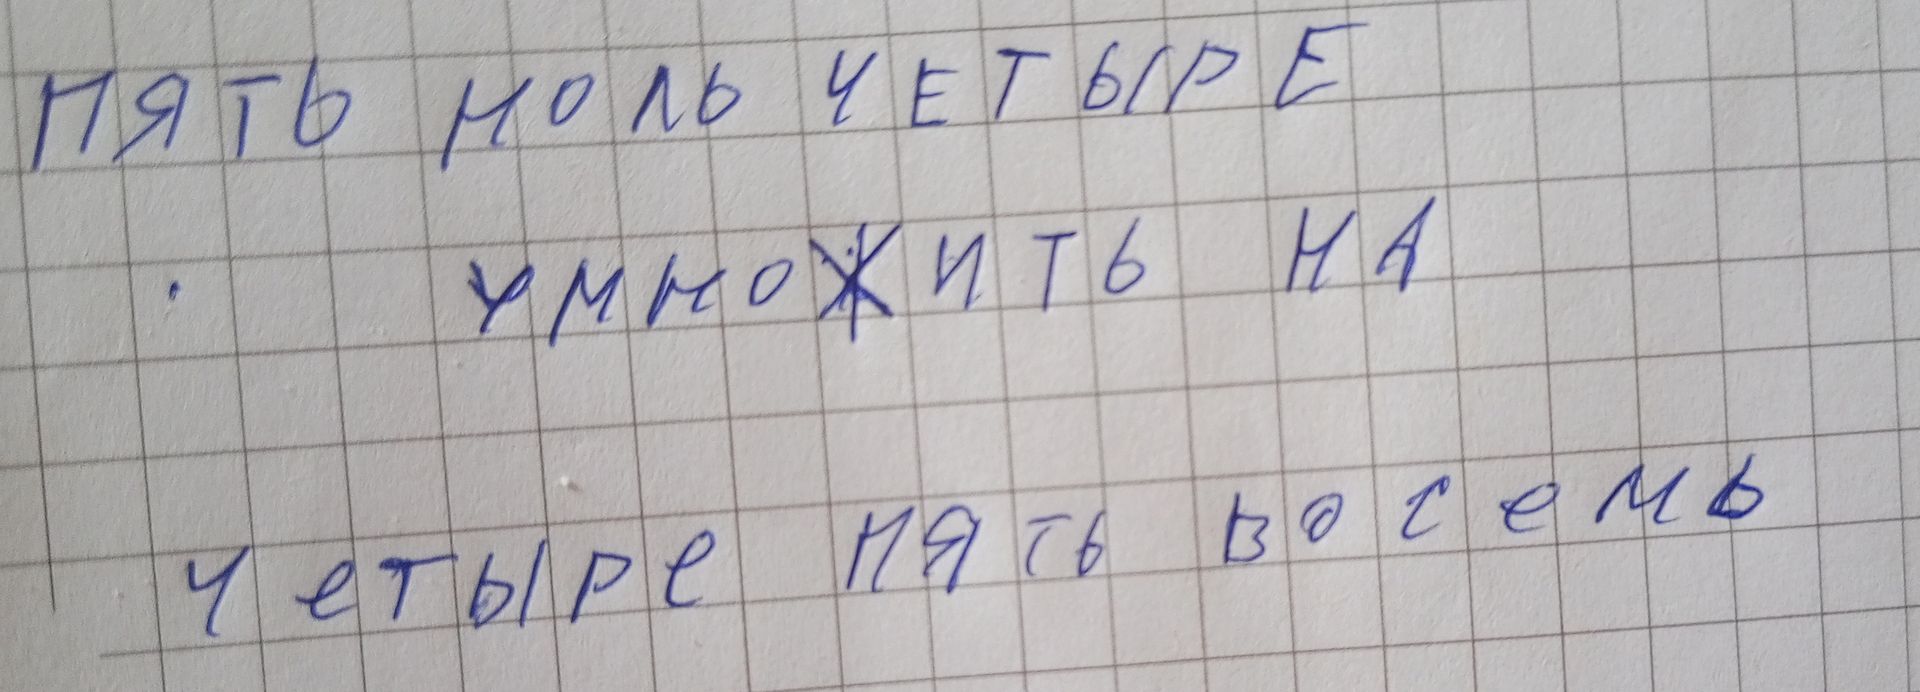 ПЯТЬ НОЛЬ ЧЕТЫРЕ
УМНОЖИТЬ НА
Четыре ПЯТЬ восемь